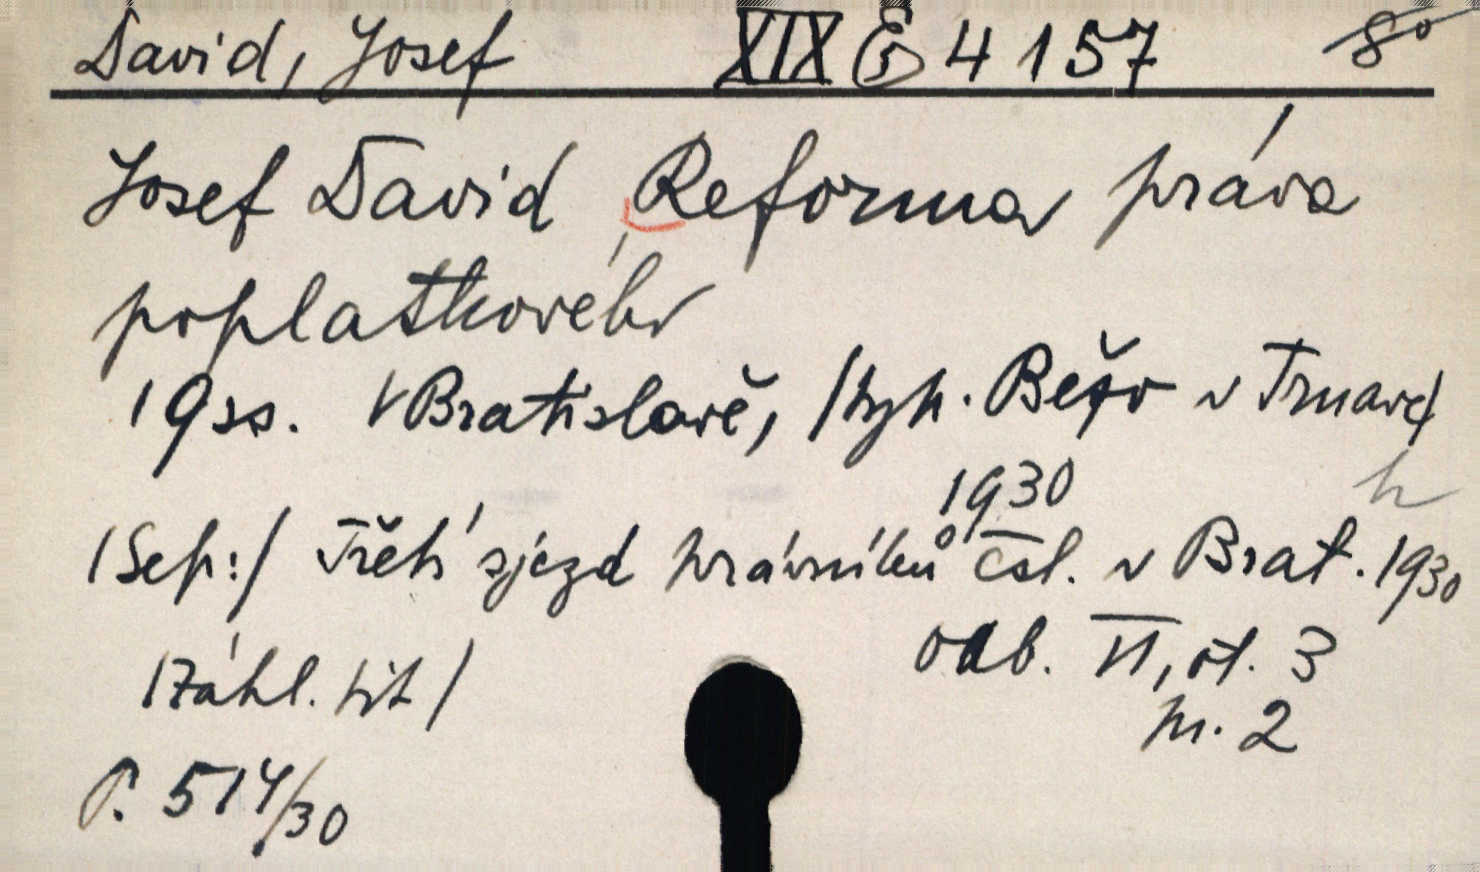 David, Josef XIX E 4157 8°
Josef David Reforma práva
poplatkového
19 ss. V Bratislavě, /typ. Bežo v Trnavě/
1930
/Sep:/ Třetí sjezd právníků čsl. v Brat. 1930
odb. II, ot. 3
/Záhl. tit/
P. 514/30